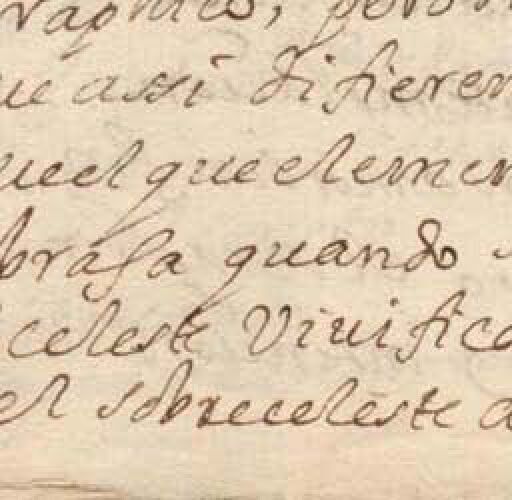 ue assi difieren
ueel que elemen
brasa quando
celeste Viuifica
el sobreceleste a